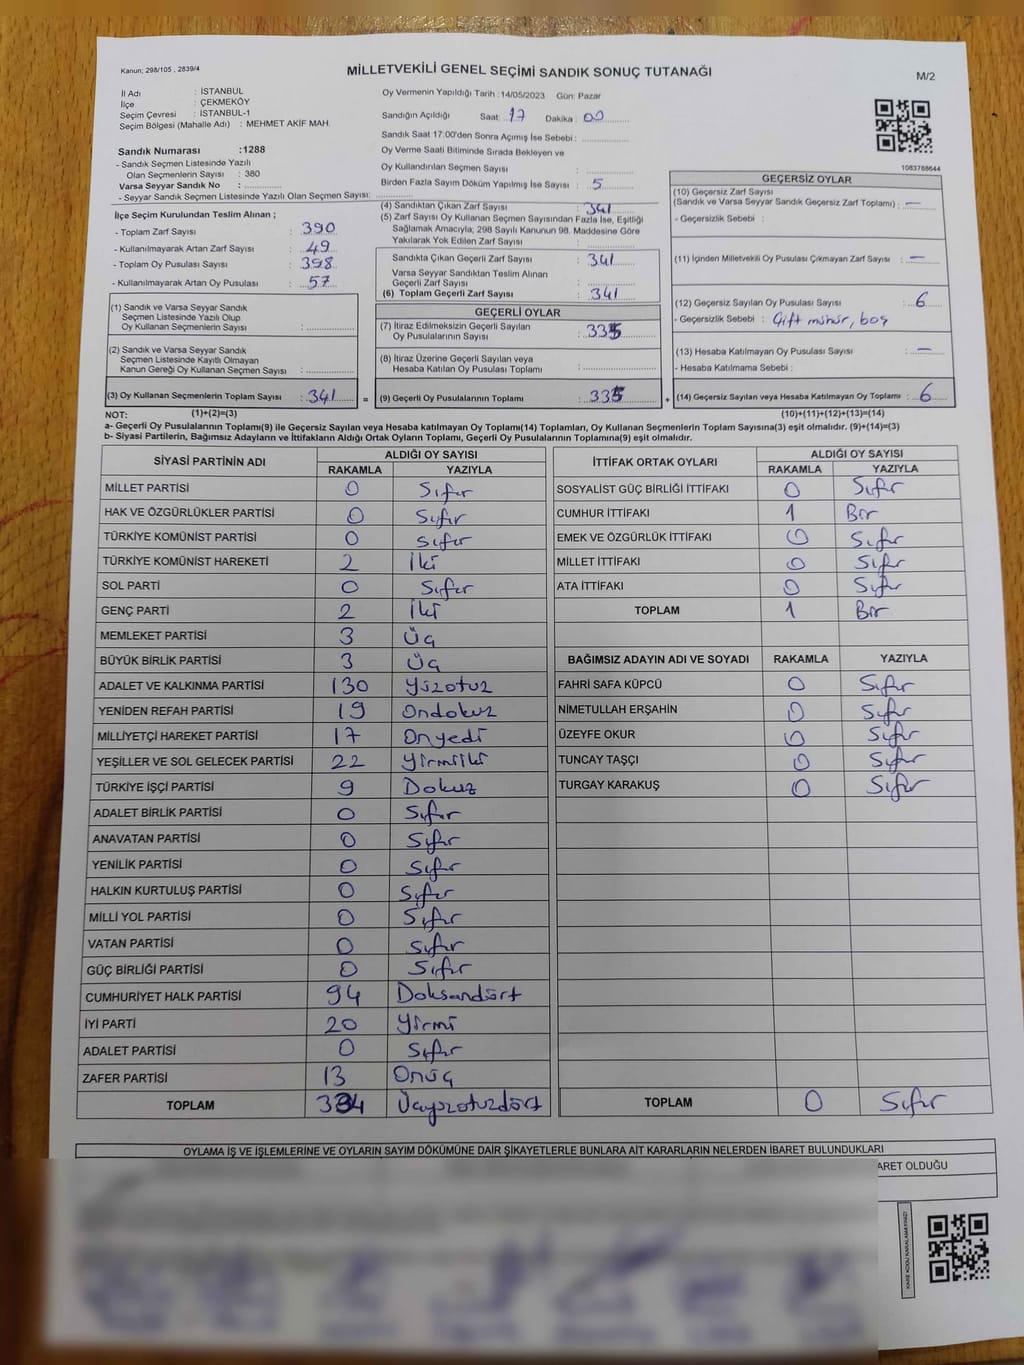 Kanun; 298/105 , 2839/4
MİLLETVEKİLİ GENEL SEÇİMİ SANDIK SONUÇ TUTANAĞI
M/2
İl Adı : İSTANBUL
İlçe : ÇEKMEKÖY
Seçim Çevresi : İSTANBUL-1
Seçim Bölgesi (Mahalle Adı) : MEHMET AKİF MAH.
Sandık Numarası :1288
- Sandık Seçmen Listesinde Yazılı
Olan Seçmenlerin Sayısı : 380
Varsa Seyyar Sandık No :
- Seyyar Sandık Seçmen Listesinde Yazılı Olan Seçmen Sayısı:
İlçe Seçim Kurulundan Teslim Alınan ;
- Toplam Zarf Sayısı : 390
- Kullanılmayarak Artan Zarf Sayısı : 49
- Toplam Oy Pusulası Sayısı : 398
- Kullanılmayarak Artan Oy Pusulası : 57
(1) Sandık ve Varsa Seyyar Sandık
Seçmen Listesinde Yazılı Olup
Oy Kullanan Seçmenlerin Sayısı :
(2) Sandık ve Varsa Seyyar Sandık
Seçmen Listesinde Kayıtlı Olmayan
Kanun Gereği Oy Kullanan Seçmen Sayısı :
(3) Oy Kullanan Seçmenlerin Toplam Sayısı : 341 =
Oy Vermenin Yapıldığı Tarih :14/05/2023 Gün: Pazar
Sandığın Açıldığı Saat: 17 Dakika : 00
Sandık Saat 17:00'den Sonra Açımış İse Sebebi :
Oy Verme Saati Bitiminde Sırada Bekleyen ve
Oy Kullandırılan Seçmen Sayısı :
Birden Fazla Sayım Döküm Yapılmış İse Sayısı : 5
(4) Sandıktan Çıkan Zarf Sayısı : 341
(5) Zarf Sayısı Oy Kullanan Seçmen Sayısından Fazla İse, Eşitliği
Sağlamak Amacıyla; 298 Sayılı Kanunun 98. Maddesine Göre
Yakılarak Yok Edilen Zarf Sayısı :
Sandıkta Çıkan Geçerli Zarf Sayısı : 341
Varsa Seyyar Sandıktan Teslim Alınan
Geçerli Zarf Sayısı :
(6) Toplam Geçerli Zarf Sayısı : 341
GEÇERLİ OYLAR
(7) İtiraz Edilmeksizin Geçerli Sayılan
Oy Pusulalarının Sayısı : 335
(8) İtiraz Üzerine Geçerli Sayılan veya
Hesaba Katılan Oy Pusulası Toplamı :
(9) Geçerli Oy Pusulalarının Toplamı : 335 +
1083788644
GEÇERSİZ OYLAR
(10) Geçersiz Zarf Sayısı
(Sandık ve Varsa Seyyar Sandık Geçersiz Zarf Toplamı) : —
- Geçersizlik Sebebi :
(11) İçinden Milletvekili Oy Pusulası Çıkmayan Zarf Sayısı : —
(12) Geçersiz Sayılan Oy Pusulası Sayısı : 6
- Geçersizlik Sebebi : Çift mühür, boş
(13) Hesaba Katılmayan Oy Pusulası Sayısı : —
- Hesaba Katılmama Sebebi :
(14) Geçersiz Sayılan veya Hesaba Katılmayan Oy Toplamı : 6
NOT: (1)+(2)=(3) (10)+(11)+(12)+(13)=(14)
a- Geçerli Oy Pusulalarının Toplamı(9) ile Geçersiz veya Hesaba katılmayan Oy Toplamı(14) Toplamları, Oy Kullanan Seçmenlerin Toplam Sayısına(3) eşit olmalıdır. (9)+(14)=(3)
b- Siyasi Partilerin, Bağımsız Adayların ve İttifakların Aldığı Ortak Oyların Toplamı, Geçerli Oy Pusulalarının Toplamına(9) eşit olmalıdır.
SİYASİ PARTİNİN ADI ALDIĞI OY SAYISI
RAKAMLA YAZIYLA
MİLLET PARTİSİ 0 Sıfır
HAK VE ÖZGÜRLÜKLER PARTİSİ 0 Sıfır
TÜRKİYE KOMÜNİST PARTİSİ 0 Sıfır
TÜRKİYE KOMÜNİST HAREKETİ 2 İki
SOL PARTİ 0 Sıfır
GENÇ PARTİ 2 İki
MEMLEKET PARTİSİ 3 Üç
BÜYÜK BİRLİK PARTİSİ 3 Üç
ADALET VE KALKINMA PARTİSİ 130 Yüzotuz
YENİDEN REFAH PARTİSİ 19 Ondokuz
MİLLİYETÇİ HAREKET PARTİSİ 17 Onyedi
YEŞİLLER VE SOL GELECEK PARTİSİ 22 Yirmiiki
TÜRKİYE İŞÇİ PARTİSİ 9 Dokuz
ADALET BİRLİK PARTİSİ 0 Sıfır
ANAVATAN PARTİSİ 0 Sıfır
YENİLİK PARTİSİ 0 Sıfır
HALKIN KURTULUŞ PARTİSİ 0 Sıfır
MİLLİ YOL PARTİSİ 0 Sıfır
VATAN PARTİSİ 0 Sıfır
GÜÇ BİRLİĞİ PARTİSİ 0 Sıfır
CUMHURİYET HALK PARTİSİ 94 Doksandört
İYİ PARTİ 20 Yirmi
ADALET PARTİSİ 0 Sıfır
ZAFER PARTİSİ 13 Onüç
TOPLAM 334 Üçyüzotuzdört
İTTİFAK ORTAK OYLARI ALDIĞI OY SAYISI
RAKAMLA YAZIYLA
SOSYALİST GÜÇ BİRLİĞİ İTTİFAKI 0 Sıfır
CUMHUR İTTİFAKI 1 Bir
EMEK VE ÖZGÜRLÜK İTTİFAKI 0 Sıfır
MİLLET İTTİFAKI 0 Sıfır
ATA İTTİFAKI 0 Sıfır
TOPLAM 1 Bir
BAĞIMSIZ ADAYIN ADI VE SOYADI RAKAMLA YAZIYLA
FAHRİ SAFA KÜPCÜ 0 Sıfır
NİMETULLAH ERŞAHİN 0 Sıfır
ÜZEYFE OKUR 0 Sıfır
TUNCAY TAŞÇI 0 Sıfır
TURGAY KARAKUŞ 0 Sıfır
TOPLAM 0 Sıfır
OYLAMA İŞ VE İŞLEMLERİNE VE OYLARIN SAYIM DÖKÜMÜNE DAİR ŞİKAYETLERLE BUNLARA AİT KARARLARIN NELERDEN İBARET BULUNDUKLARI
ARET OLDUĞU
KARE KODU KARALAMAYINIZ!